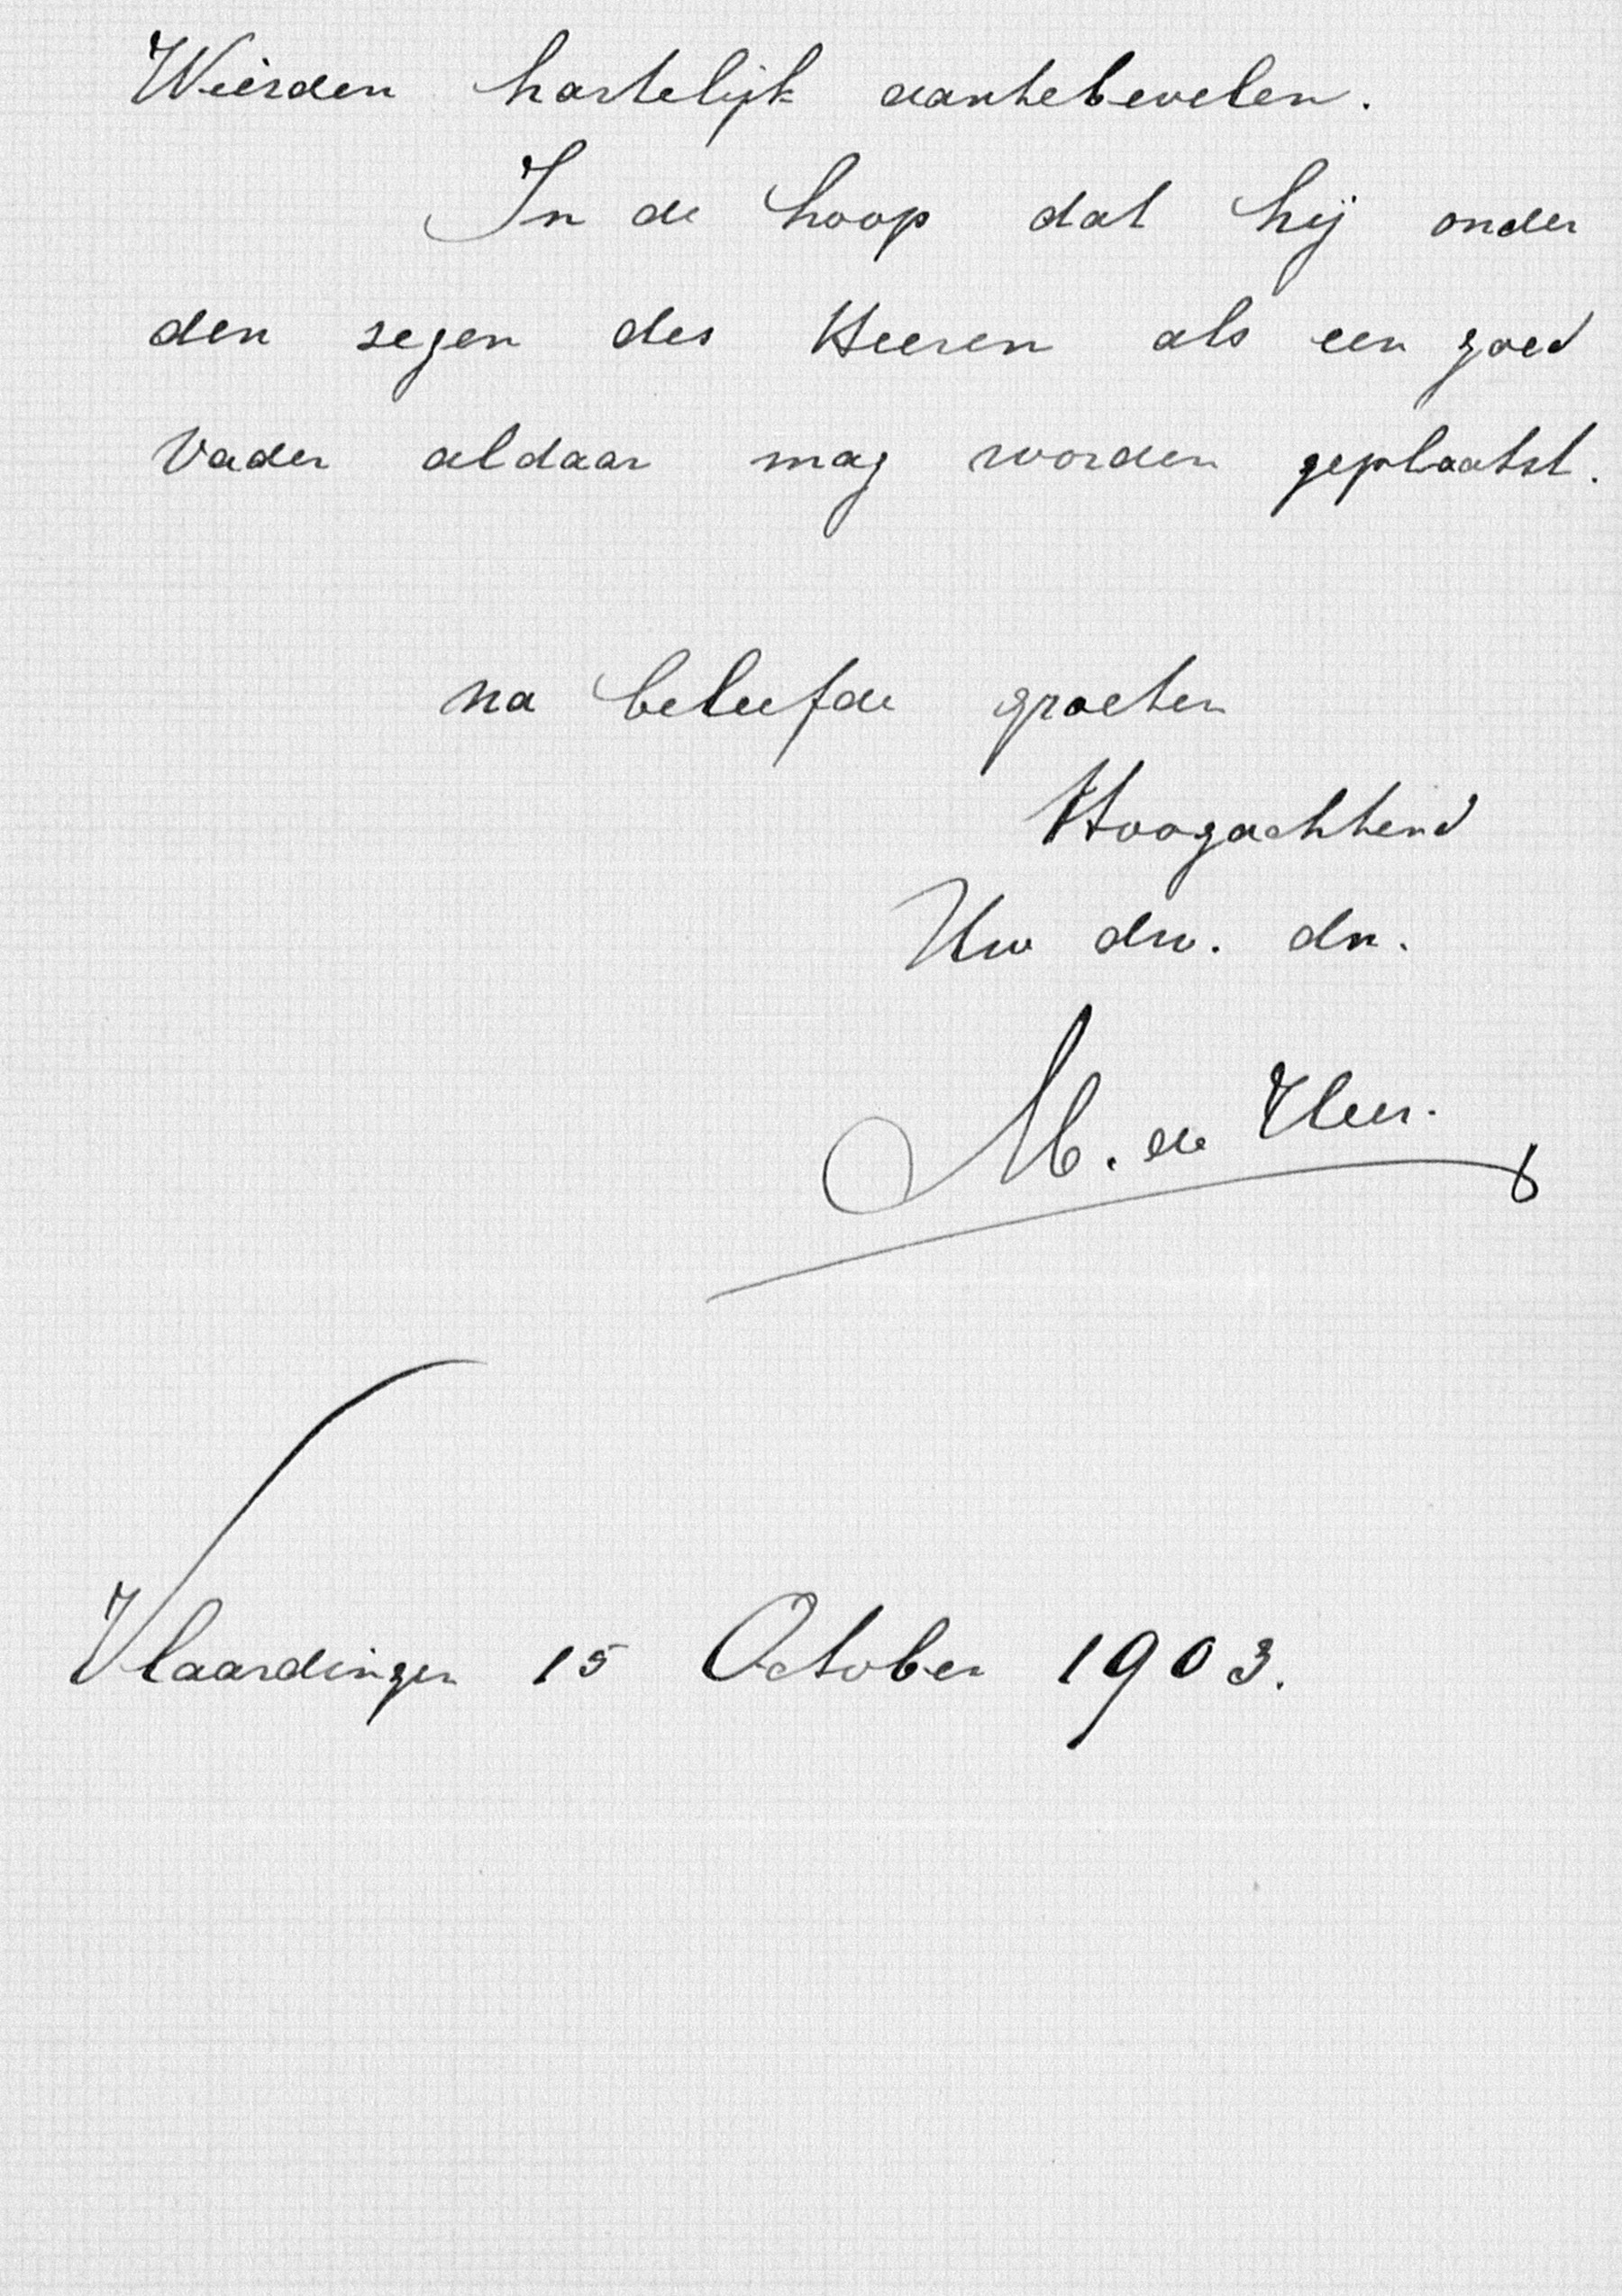 Weêrden hartelijk aantebevelen.
In de hoop dat hij onder
den segen des Heeren als een goed
Vader aldaar mag worden geplaatst.
na beleefde groeten
Hoogachtend
Uw dw. dn.
M. de
Vlaardingen 15 October 1903.